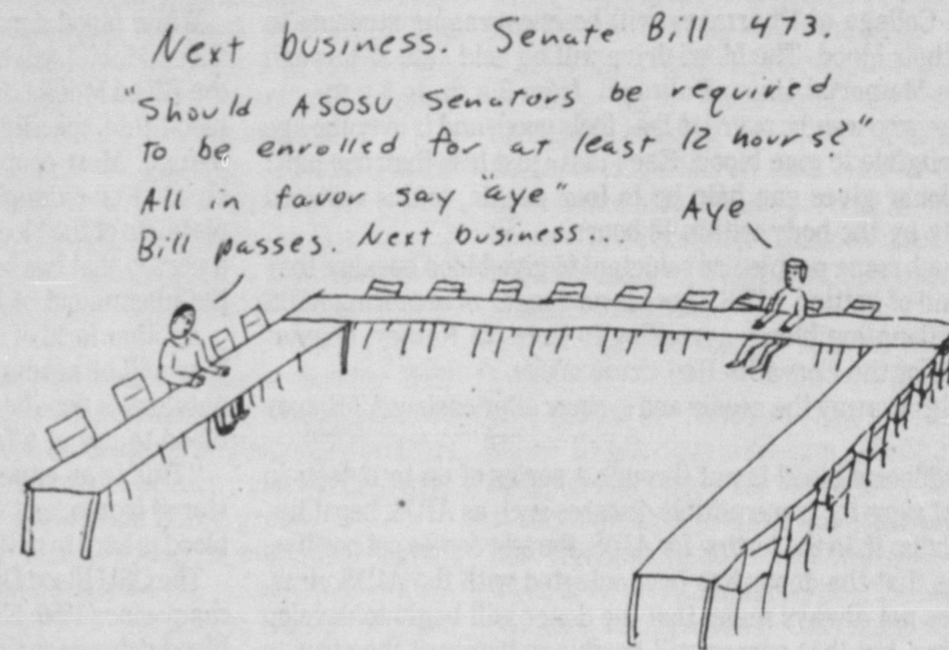 Next business. Senate Bill 473.
"Should ASOSU Senators be required
to be enrolled for at least 12 hours"
All in favor say "aye"
Aye
Bill passes. Next business...